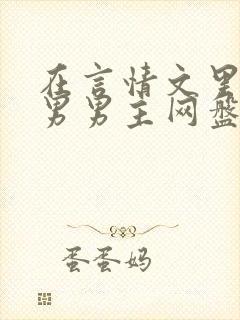 在言情文里
男男主网盘
蛋蛋妈